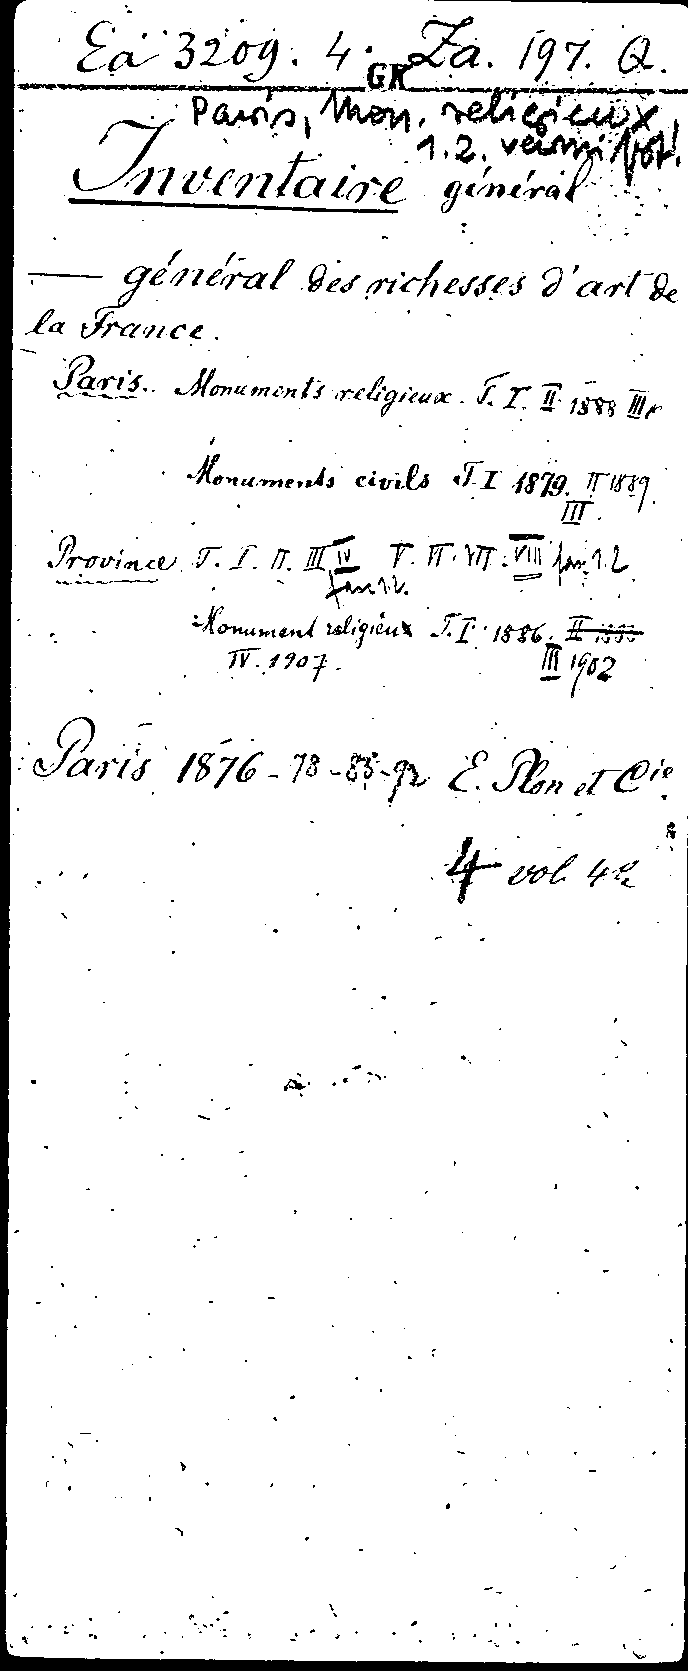 Ea 3209. 4. Za. 197. Q.
GR
Paris, Mon. religieux
1.2. vermißt!
Inventaire général
— général des richesses d'art de
la France.
Paris. Monuments religieux. T. I. II 1888 III
Monuments civils T. I 1879. II 1889
III.
Province T. I. II. III IV V. VI. VII. VIII fasc. 1.2
fasc. 1.2.
Monument religieux T. I. 1886. II 1888
IV. 1907. III 1902
Paris 1876-78-85-92 E. Plon et Cie
4 vol. 4o